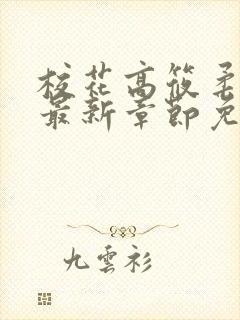 校花高筱柔
最新章節免
九雲衫